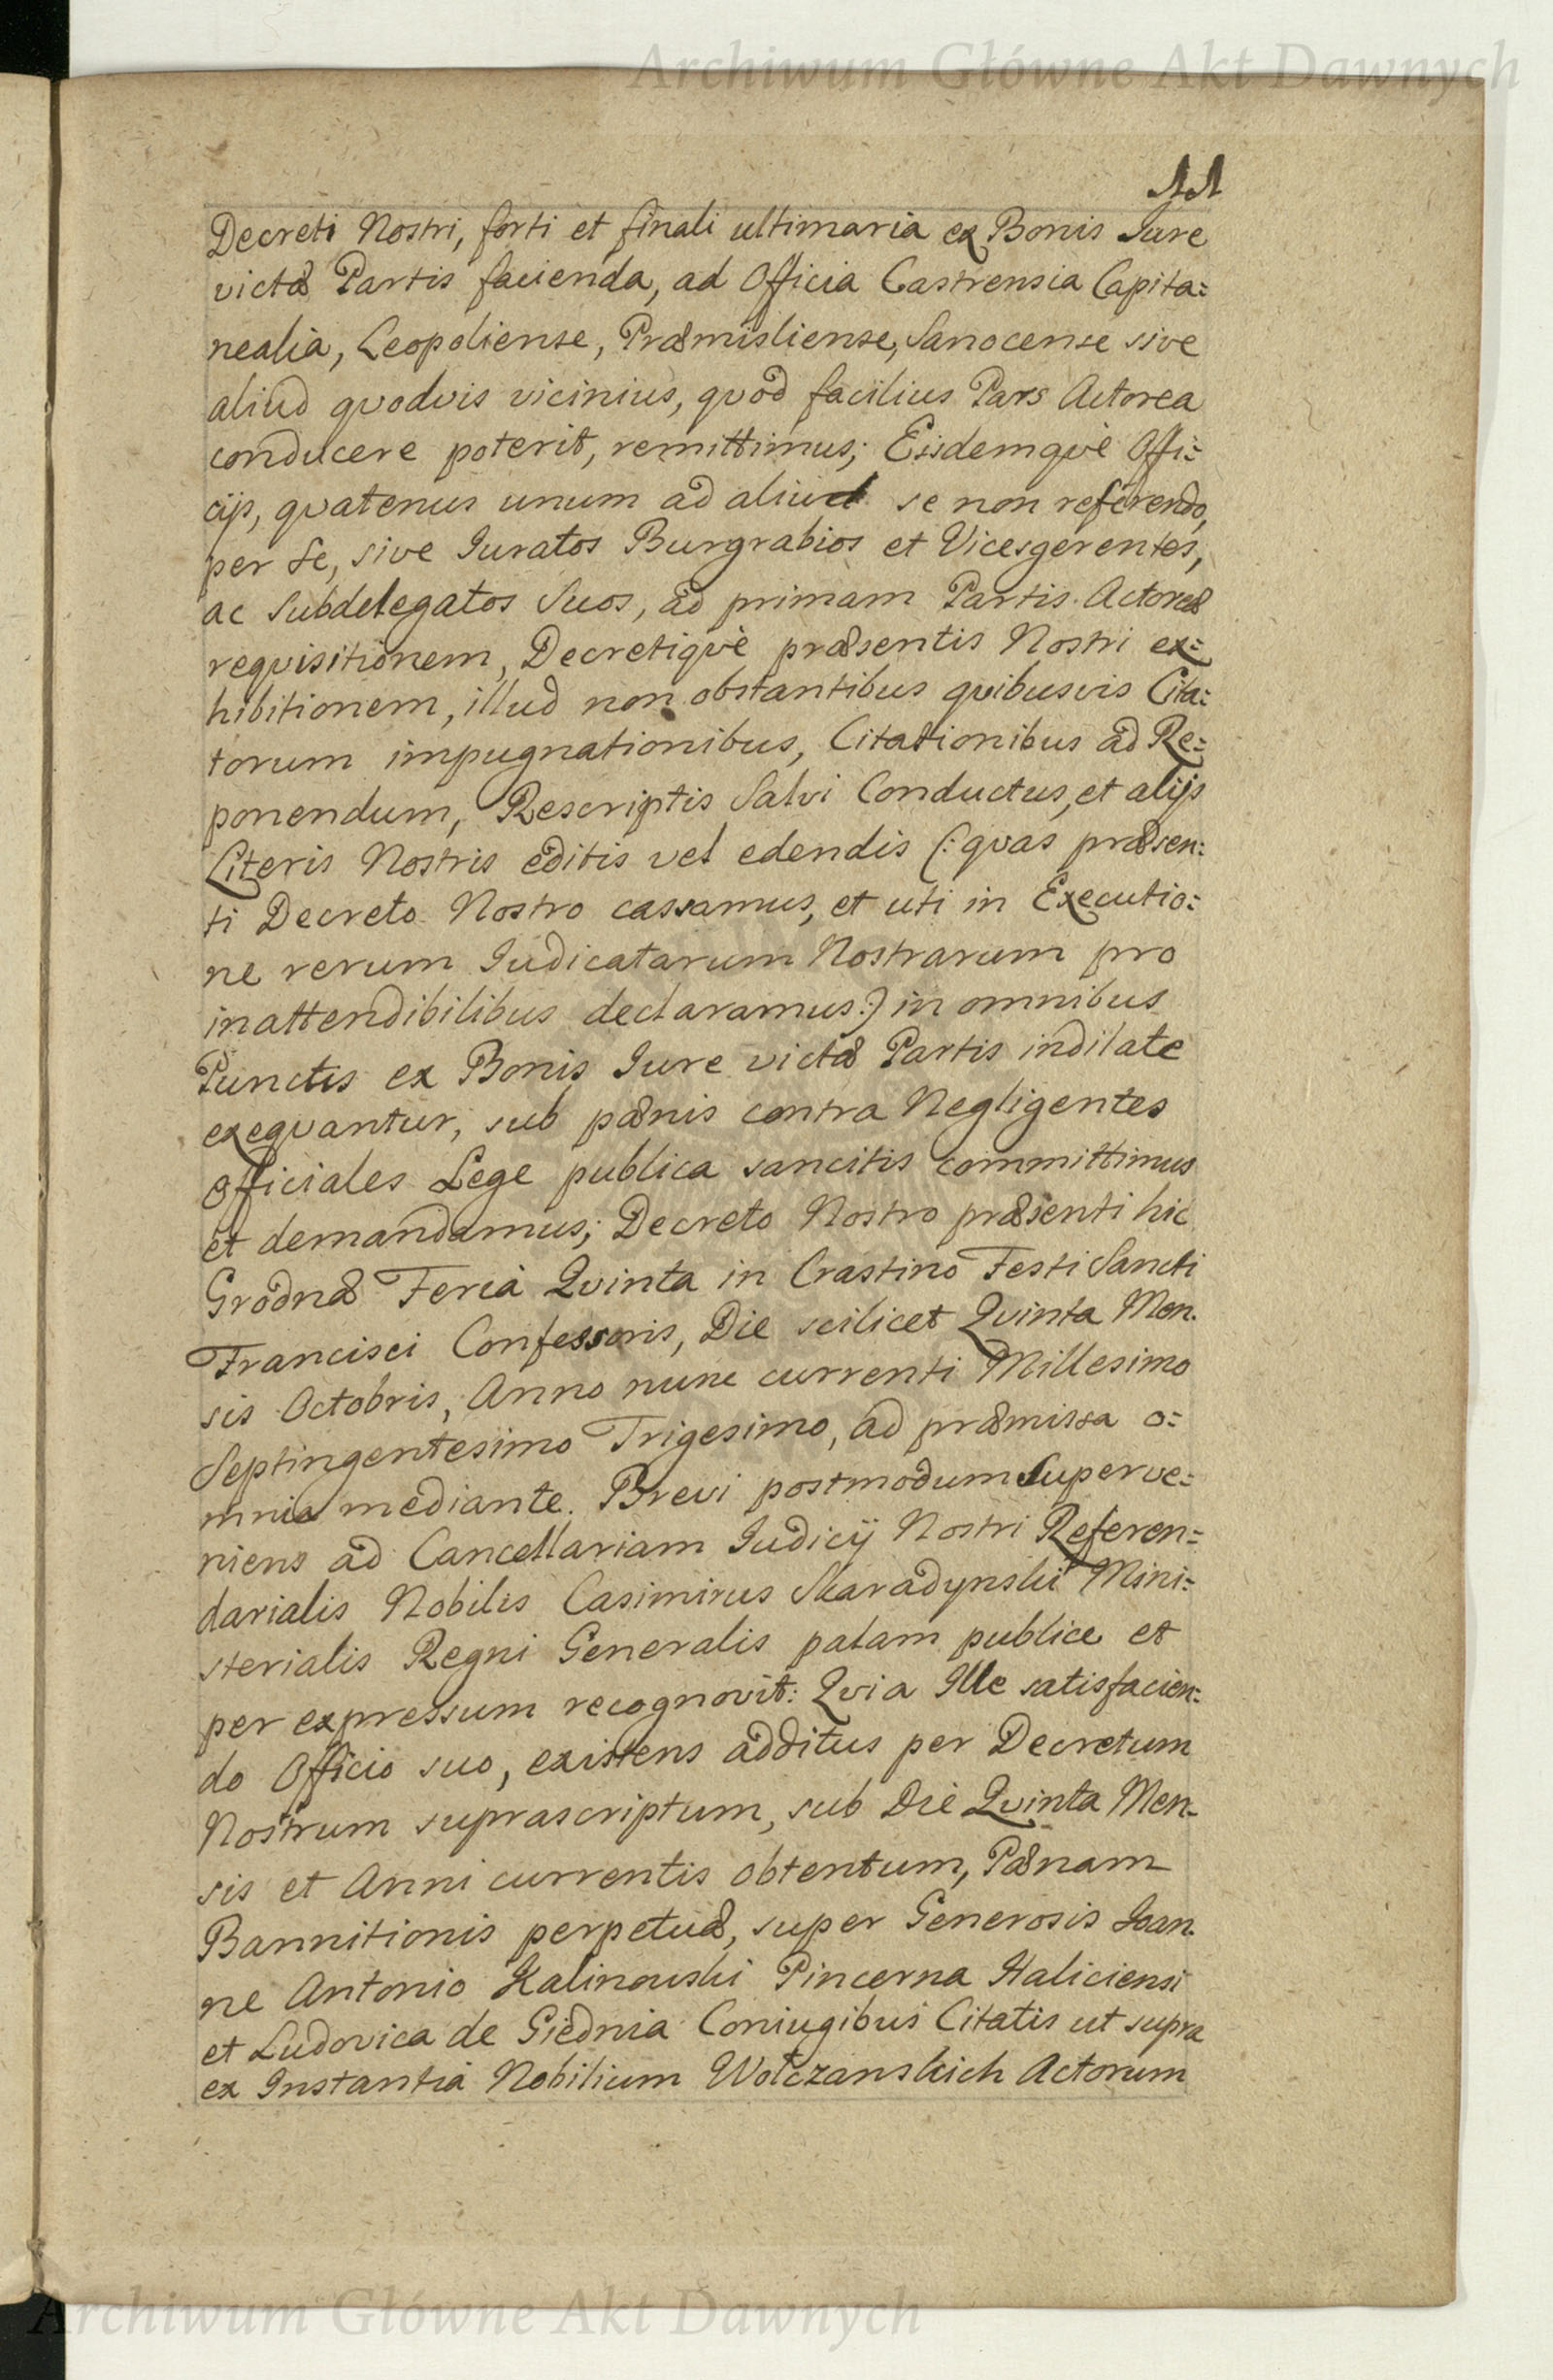 Archiwum Główne Akt Dawnych
11
Decreti Nostri, forti et finali ultimaria ex Bonis Iure
victæ Partis facienda, ad Officia Castrensia Capita=
nealia, Leopoliense, Præmisliense, Sanocense sive
aliud quodvis vicinius, quod facilius Pars Actorea
conducere poterit, remittimus; Eisdemque Offi=
cijs, quatenus unum ad aliud se non referendo,
per se, sive Iuratos Burgrabios et Vicesgerentes,
ac Subdelegatos Suos, ad primam Partis Actoreæ
requisitionem, Decretique præsentis Nostri ex=
hibitionem, illud non obstantibus quibusvis Cita=
torum impugnationibus, Citationibus ad Re=
ponendum, Rescriptis Salvi Conductus, et alijs
Literis Nostris editis vel edendis (: quas præsen=
ti Decreto Nostro cassamus, et uti in Executio=
ne rerum Iudicatarum Nostrarum pro
inattendibilibus declaramus:) in omnibus
Punctis ex Bonis Iure victæ Partis indilate
exequantur, sub pænis contra Negligentes
Officiales Lege publica sancitis committimus
et demandamus; Decreto Nostro præsenti hic
Grodnæ Feria Quinta in Crastino Festi Sancti
Francisci Confessoris, Die scilicet Quinta Men.
sis Octobris, Anno nunc currenti Millesimo
Septingentesimo Trigesimo, ad præmissa o=
mnia mediante. Brevi postmodum Superve=
niens ad Cancellariam Iudicÿ Nostri Referen=
darialis Nobilis Casimirus Skaradynski Mini=
sterialis Regni Generalis palam publice et
per expressum recognovit: Quia Ille satisfacien=
do Officio suo, existens additus per Decretum
Nostrum suprascriptum, sub Die Quinta Men-
sis et Anni currentis obtentum, Pænam
Bannitionis perpetuæ, super Generosis Ioan.
ne Antonio Kalinouski Pincerna Haliciensi
et Ludovica de Giednia Coniugibus Citatis ut supra
ex Instantia Nobilium Wołczanskich Actorum
Archiwum Główne Akt Dawnych